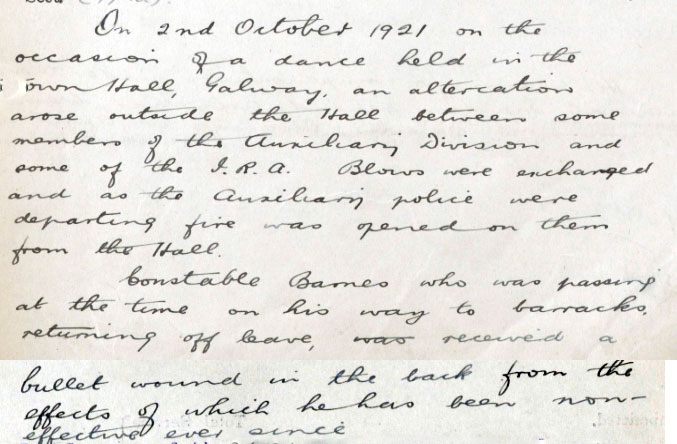 On 2nd October 1921 on the
occasion of a dance held in the
Town Hall, Galway, an altercation
arose outside the Hall between some
members of the Auxiliary Division and
some of the I.R.A. Blows were exchanged
and as the Auxiliary police were
departing fire was opened on them
from the Hall.
Constable Barnes who was passing
at the time on his way to barracks,
returning off leave, was received a
bullet wound in the back from the
effects of which he has been non-
effective ever since